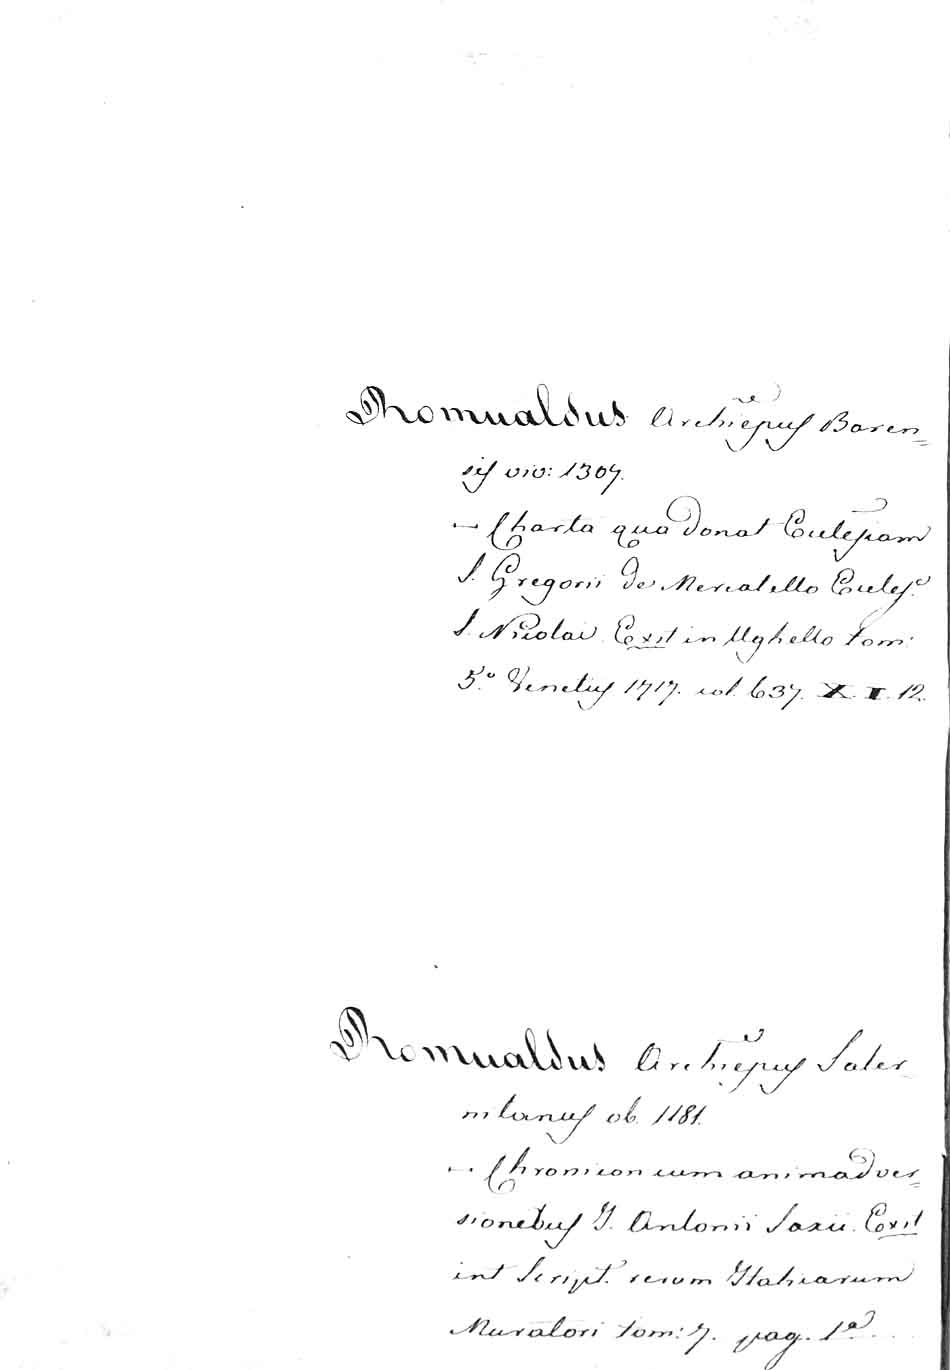 Romualdus Archiepus Baren=
sis viv: 1307.
— Charta qua donat Ecclesiam
S. Gregorii de Mercatello Eccles.
S. Nicolai. Exit in Ughello tom:
5.° Venetiis 1717. col. 637. X. I. 12.
Romualdus Archiepus Saler_
nitanus ob. 1181.
— Chronicon cum animadver=
sionebus J. Antonii Saxii. Exit
int Script. rerum Italicarum
Muratori tom: 7. pag. 1.ª